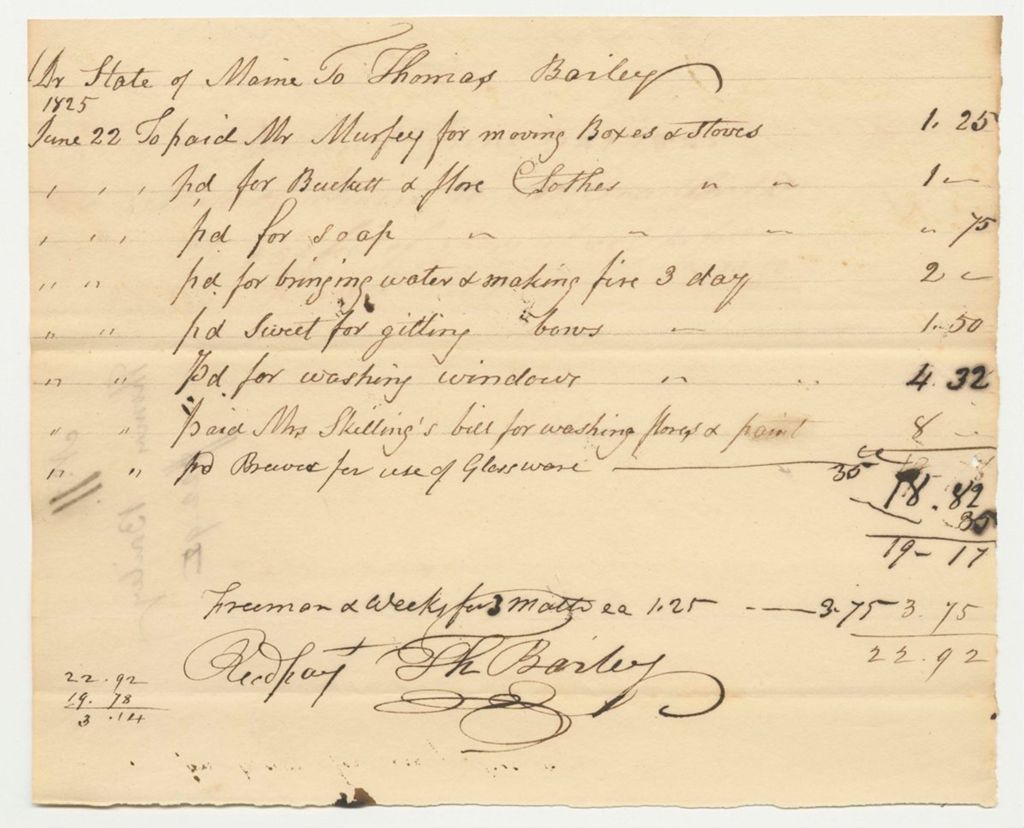 Dr State of Maine To Thomas Bailey
1825
June 22 To paid Mr Murfey for moving Boxes & stoves 1. 25
" " " pd for Buckett & flore Clothes " " 1 —
" " " pd for soap " " " " 75
" " pd. for bringing water & making fire 3 day 2 —
" " pd Sweet for gitting bows " 1. 50
" " Pd for washing windows " " 4. 32
" " paid Mrs Skilling's bill for washing flores & paint 8 —
" " pd Brewer for use of Glassware — 35
18. 82
35
19 — 17
Freeman & Weeks for 3 matts ea 1.25 — 3.75 3. 75
22. 92
Recd pay't Th Bailey
22. 92
19. 78
3. 14
Thomas Bailey